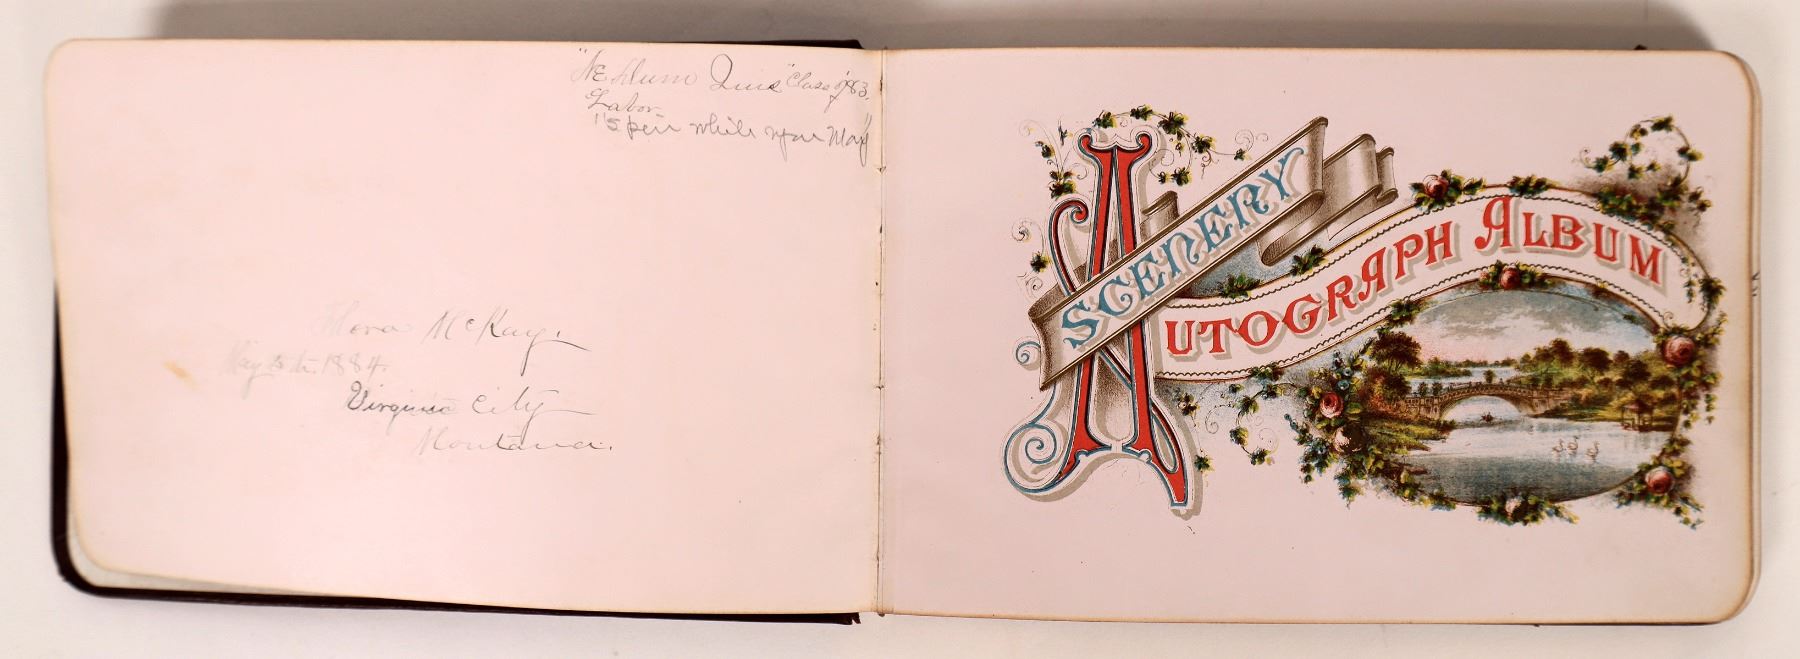 Class of '83.
Labor
while you May"
Flora McKay.
May 5th 1884.
Virginia City
Montana.
SCENERY
AUTOGRAPH ALBUM